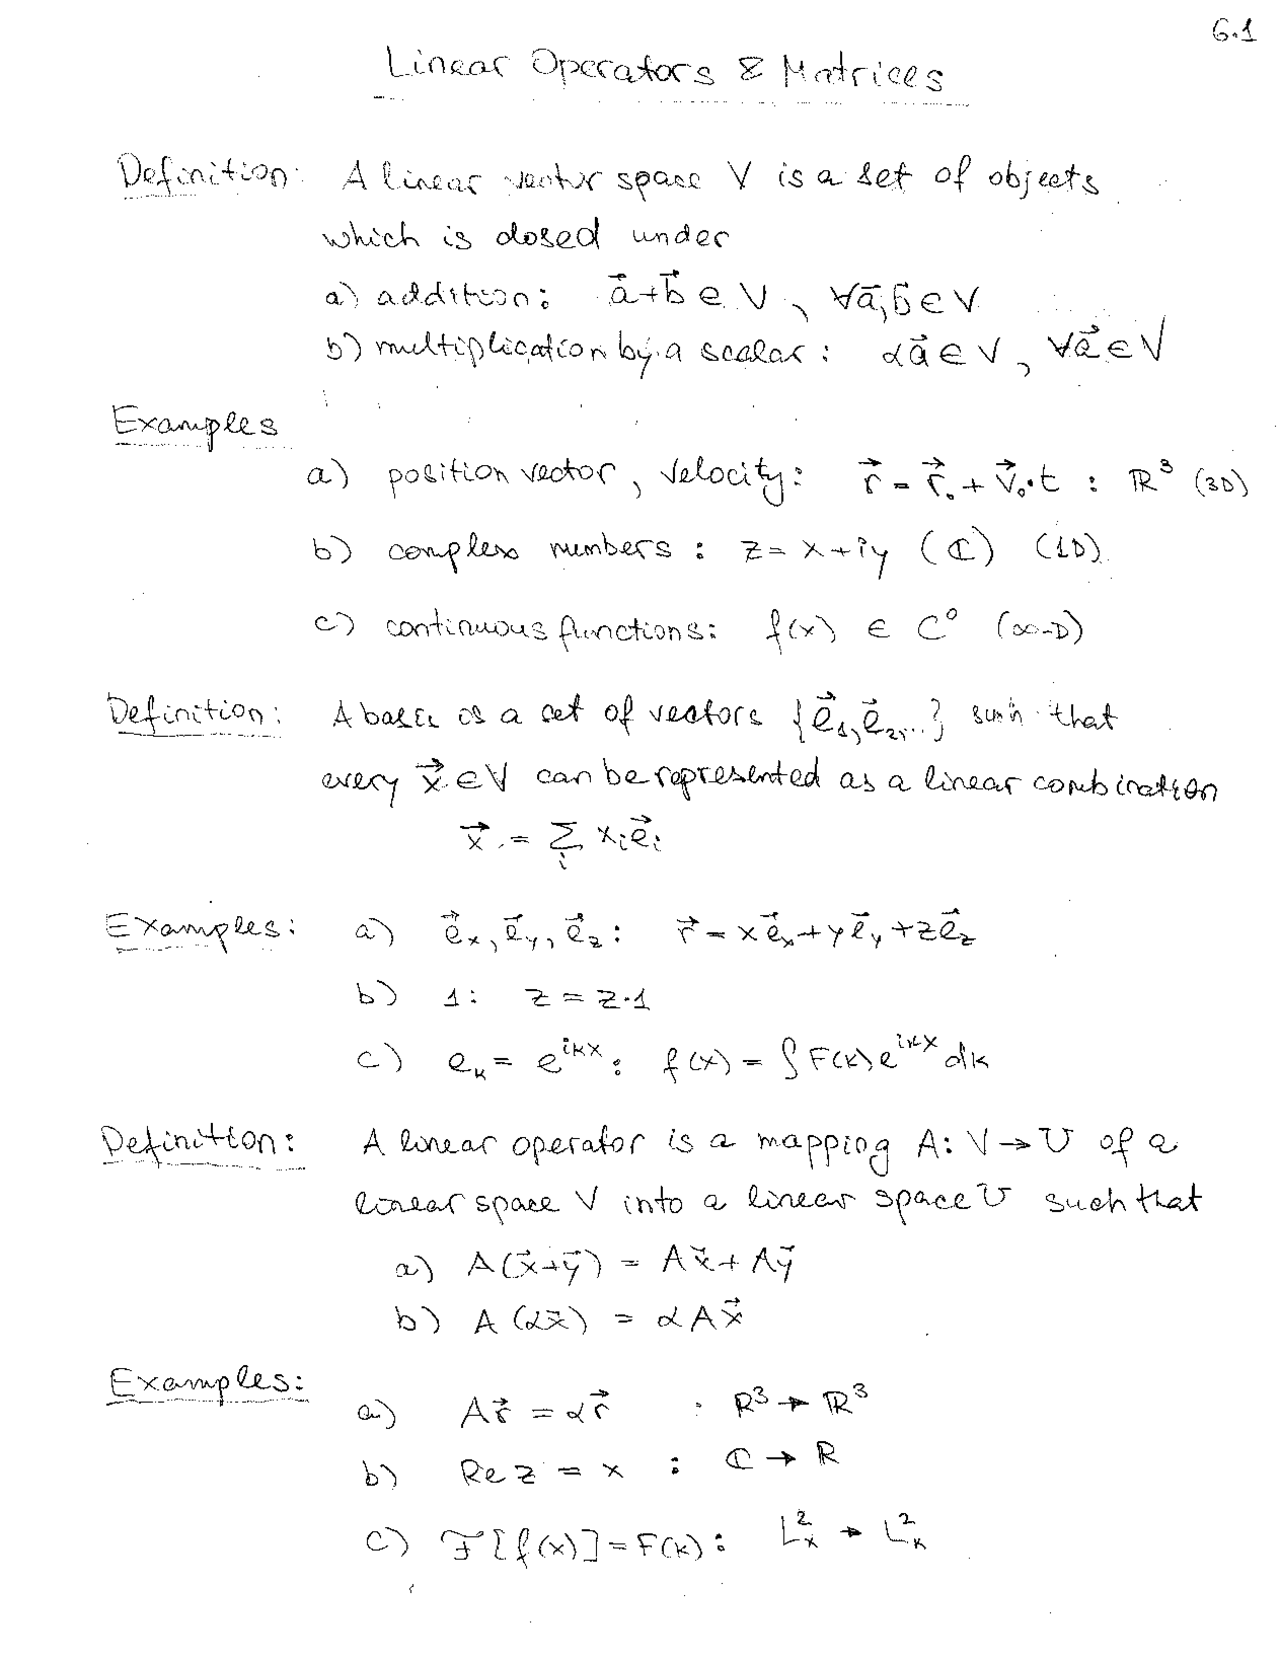 6.1
Linear Operators & Matrices
Definition: A linear vector space V is a set of objects
which is closed under
a) addition: a⃗+b⃗ ∈ V, ∀a⃗,b⃗ ∈ V
b) multiplication by a scalar: αa⃗ ∈ V, ∀a⃗ ∈ V
Examples
a) position vector, velocity: r⃗ = r⃗₀ + v⃗₀·t : ℝ³ (3D)
b) complex numbers: z = x+iy (ℂ) (1D)
c) continuous functions: f(x) ∈ C⁰ (∞-D)
Definition: A basis is a set of vectors {e⃗₁,e⃗₂,...} such that
every x⃗ ∈ V can be represented as a linear combination
x⃗ = Σᵢ xᵢe⃗ᵢ
Examples: a) e⃗ₓ, e⃗_y, e⃗_z: r⃗ = xe⃗ₓ+ye⃗_y+ze⃗_z
b) 1: z = z·1
c) eₖ = e^{ikx}: f(x) = ∫F(k)e^{ikx}dk
Definition: A linear operator is a mapping A: V→U of a
linear space V into a linear space U such that
a) A(x⃗+y⃗) = Ax⃗+Ay⃗
b) A(αx⃗) = αAx⃗
Examples:
a) Ar⃗ = αr⃗ : ℝ³ → ℝ³
b) Re z = x : ℂ → ℝ
c) ℱ[f(x)] = F(k): L²ₓ → L²ₖ